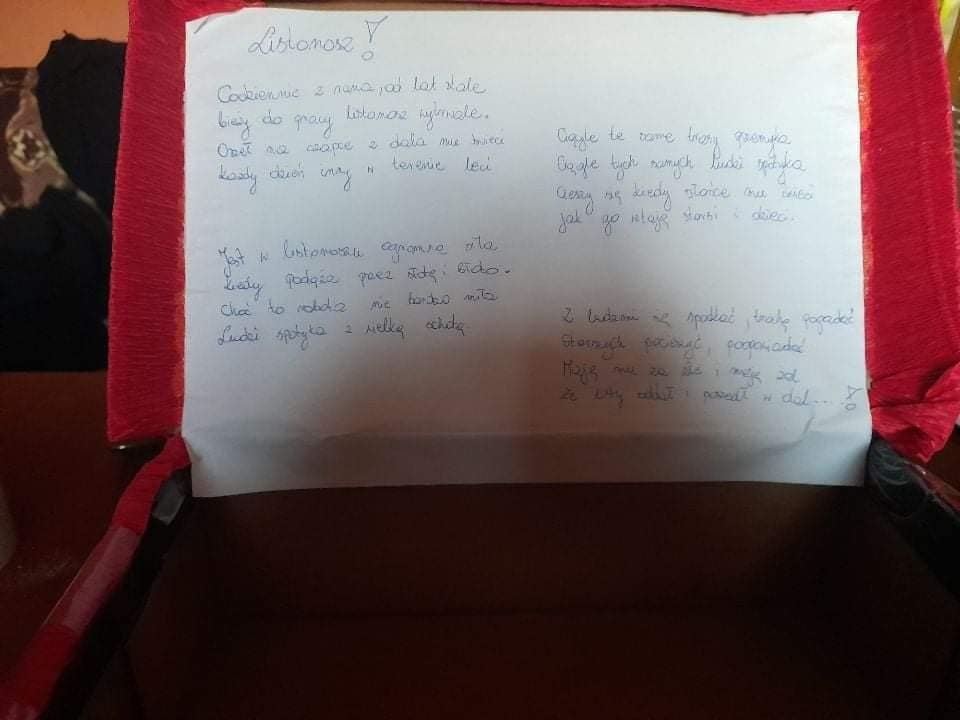 Listonosz!
Codziennie z rana, od lat stale
bieży do pracy listonosz wytrwale.
Orzeł na czapce z dala mu świeci
każdy dzień inny w terenie leci
Jest w listonoszu ogromna siła
kiedy podąża przez słotę i błoto.
Choć to robota nie bardzo miła
Ludzi spotyka z wielką ochotą.
Ciągle te same trasy przemyka
Ciągle tych samych ludzi spotyka
Cieszy się kiedy słońce mu świeci
jak go witają starsi i dzieci.
Z ludźmi się spotkać, trochę pogadać
Starszych pocieszyć, podpowiadać
Mają mu za złe i mają żal
że listy oddał i poszedł w dal....!